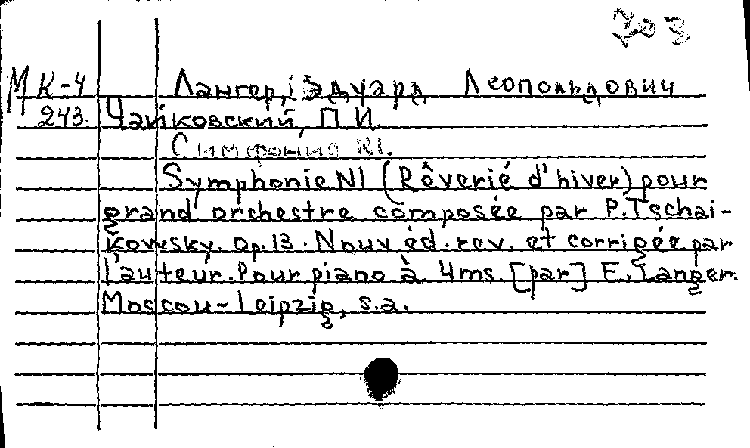 703
М К-4 Лангер, Эдуард Леопольдович
243. Чайковский, П.И.
Симфония N1.
Symphonie N1 (Rêverié d'hiver) pour
grand orchestre composée par P. Tschai-
kowsky. Op. 13. Nouv. éd. rev. et corrigée par
l'auteur. Pour piano à 4ms. [par] E. Langer.
Moscou-Leipzig, s.a.